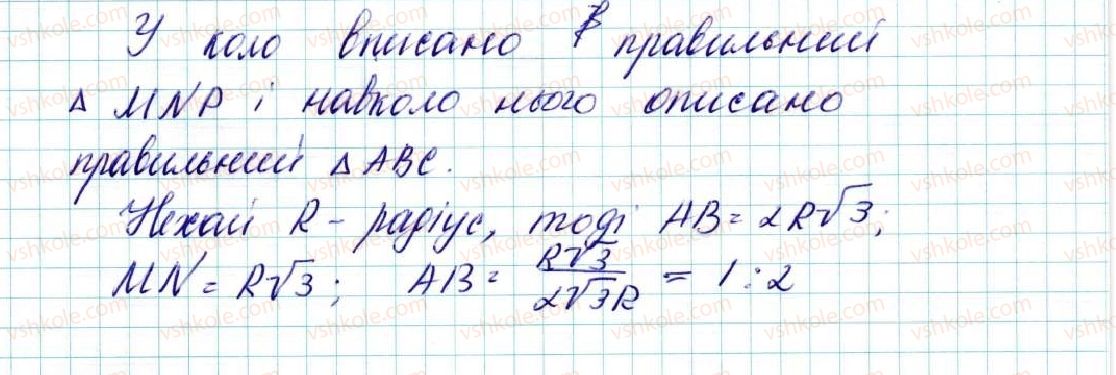 У коло вписано правильний
△ MNP і навколо нього описано
правильний △ ABC.
Нехай R - радіус, тоді AB = 2R√3;
MN = R√3; AB = R√3 / 2√3R = 1:2